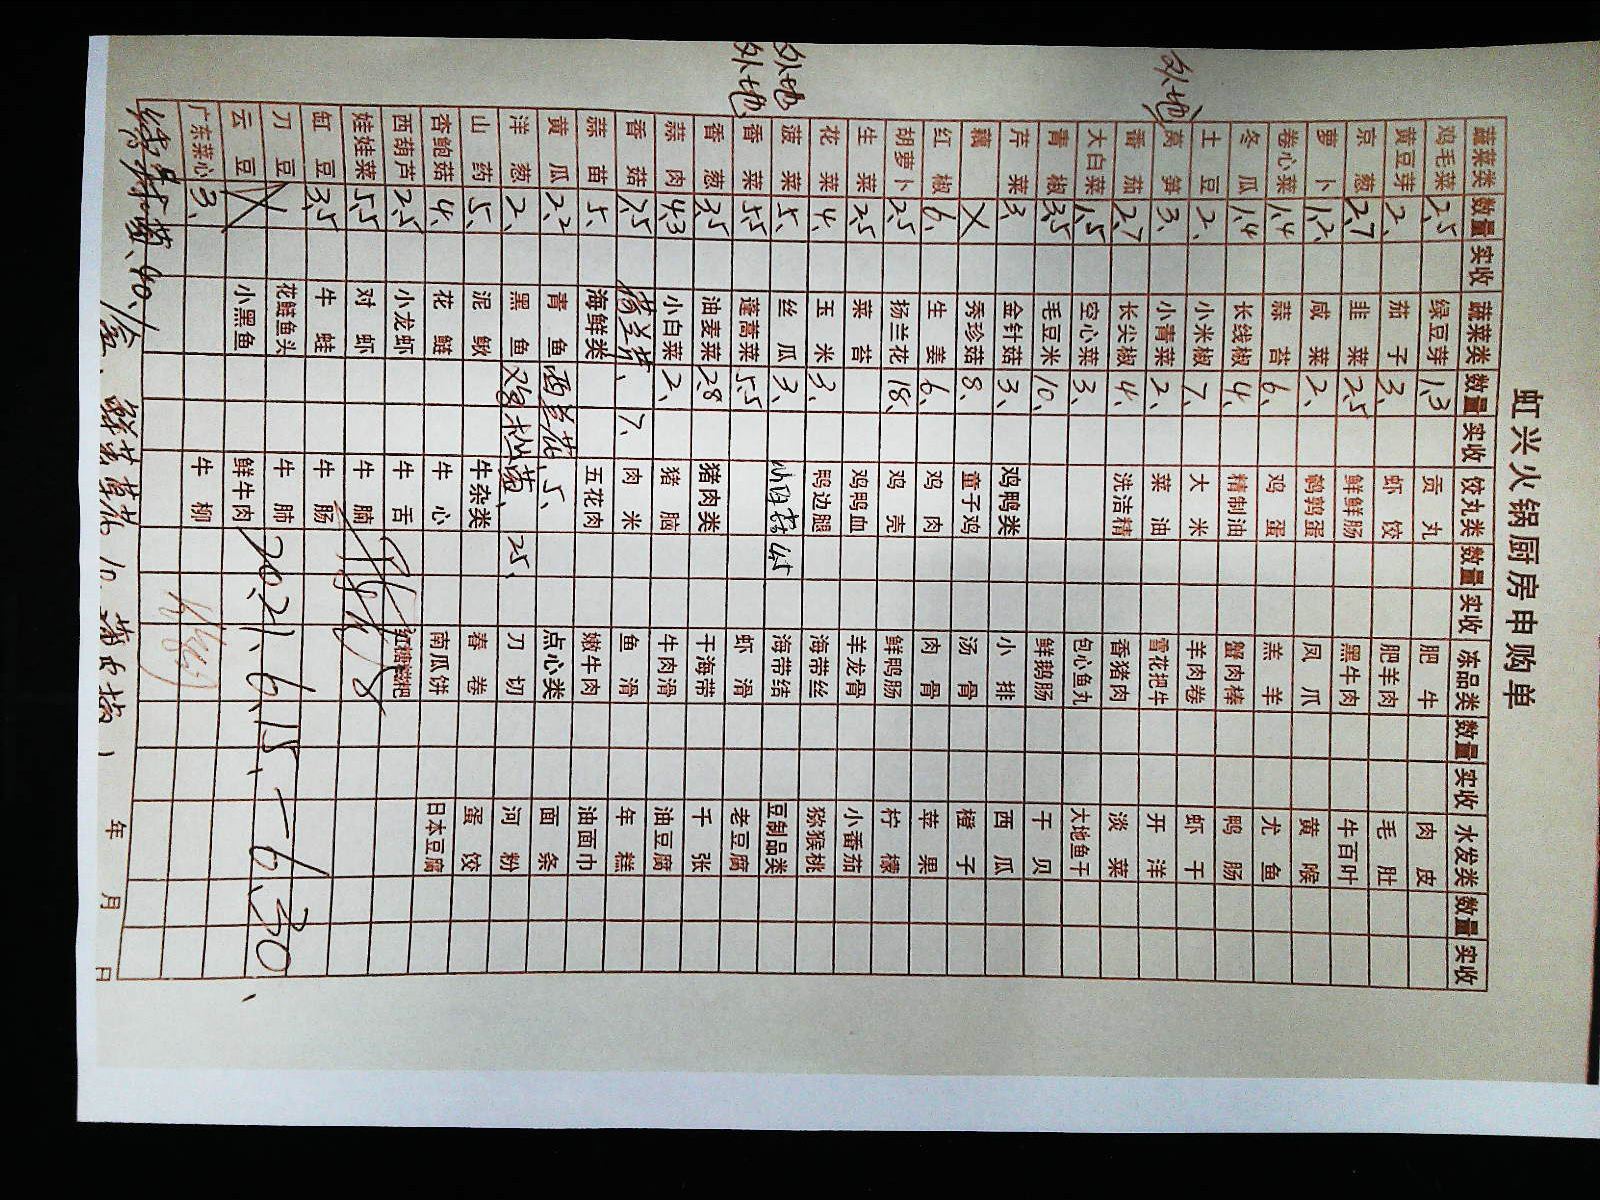 虹兴火锅厨房申购单
蔬菜类 数量 实收 蔬菜类 数量 实收 饺丸类 数量 实收 冻品类 数量 实收 水发类 数量 实收
鸡毛菜 2.5 绿豆芽 1.3 贡丸 肥牛 肉皮
黄豆芽 2、 茄子 3、 虾饺 肥羊肉 毛肚
京葱 2.7 韭菜 2.5 鲜鲜肠 黑牛肉 牛百叶
萝卜 1.2、 咸菜 2、 鹌鹑蛋 凤爪 黄喉
卷心菜 1.4 蒜苔 6、 鸡蛋 羔羊 尤鱼
冬瓜 1.4 长线椒 4、 精制油 蟹肉棒 鸭肠
土豆 2、 小米椒 7、 大米 羊肉卷 虾干
外地 莴笋 3、 小青菜 2、 菜油 雪花把牛 开洋
番茄 2.7 长尖椒 4、 洗洁精 香猪肉 淡菜
大白菜 1.5 空心菜 3、 包心鱼丸 大地鱼干
青椒 3.5 毛豆米 10、 鲜鹅肠 干贝
芹菜 3、 金针菇 3、 鸡鸭类 小排 西瓜
藕 X 秀珍菇 8、 童子鸡 汤骨 橙子
红椒 6、 生姜 6、 鸡肉 肉骨 苹果
胡萝卜 2.5 扬兰花 18、 鸡壳 鲜鸭肠 柠檬
生菜 2.5 菜苔 鸡鸭血 羊龙骨 小番茄
花菜 4、 玉米 3、 鸭边腿 海带丝 猕猴桃
外地 菠菜 5、 丝瓜 3、 4.5 海带结 豆制品类
外地 香菜 5.5 蓬蒿菜 5.5 虾滑 老豆腐
香葱 3.5 油麦菜 2.8 猪肉类 干海带 千张
蒜肉 4.3 小白菜 2、 猪脑 牛肉滑 油豆腐
香菇 7.5 7、 肉米 鱼滑 年糕
蒜苗 5、 海鲜类 五花肉 嫩牛肉 油面巾
黄瓜 2.2 青鱼 西兰花、5、 点心类 面条
洋葱 2、 黑鱼 鸡枞菌、25、 刀切 河粉
山药 5、 泥鳅 牛杂类 春卷 蛋饺
杏鲍菇 4、 花鲢 牛心 南瓜饼 日本豆腐
西胡芦 2.5 小龙虾 牛舌 红糖糍粑
娃娃菜 5.5 对虾 牛腩
缸豆 3.5 牛蛙 牛肠
刀豆 花鲢鱼头 牛肺
云豆 小黑鱼 鲜牛肉 2021、6、15、一6、30、
广东菜心 3、 牛柳
年 月 日